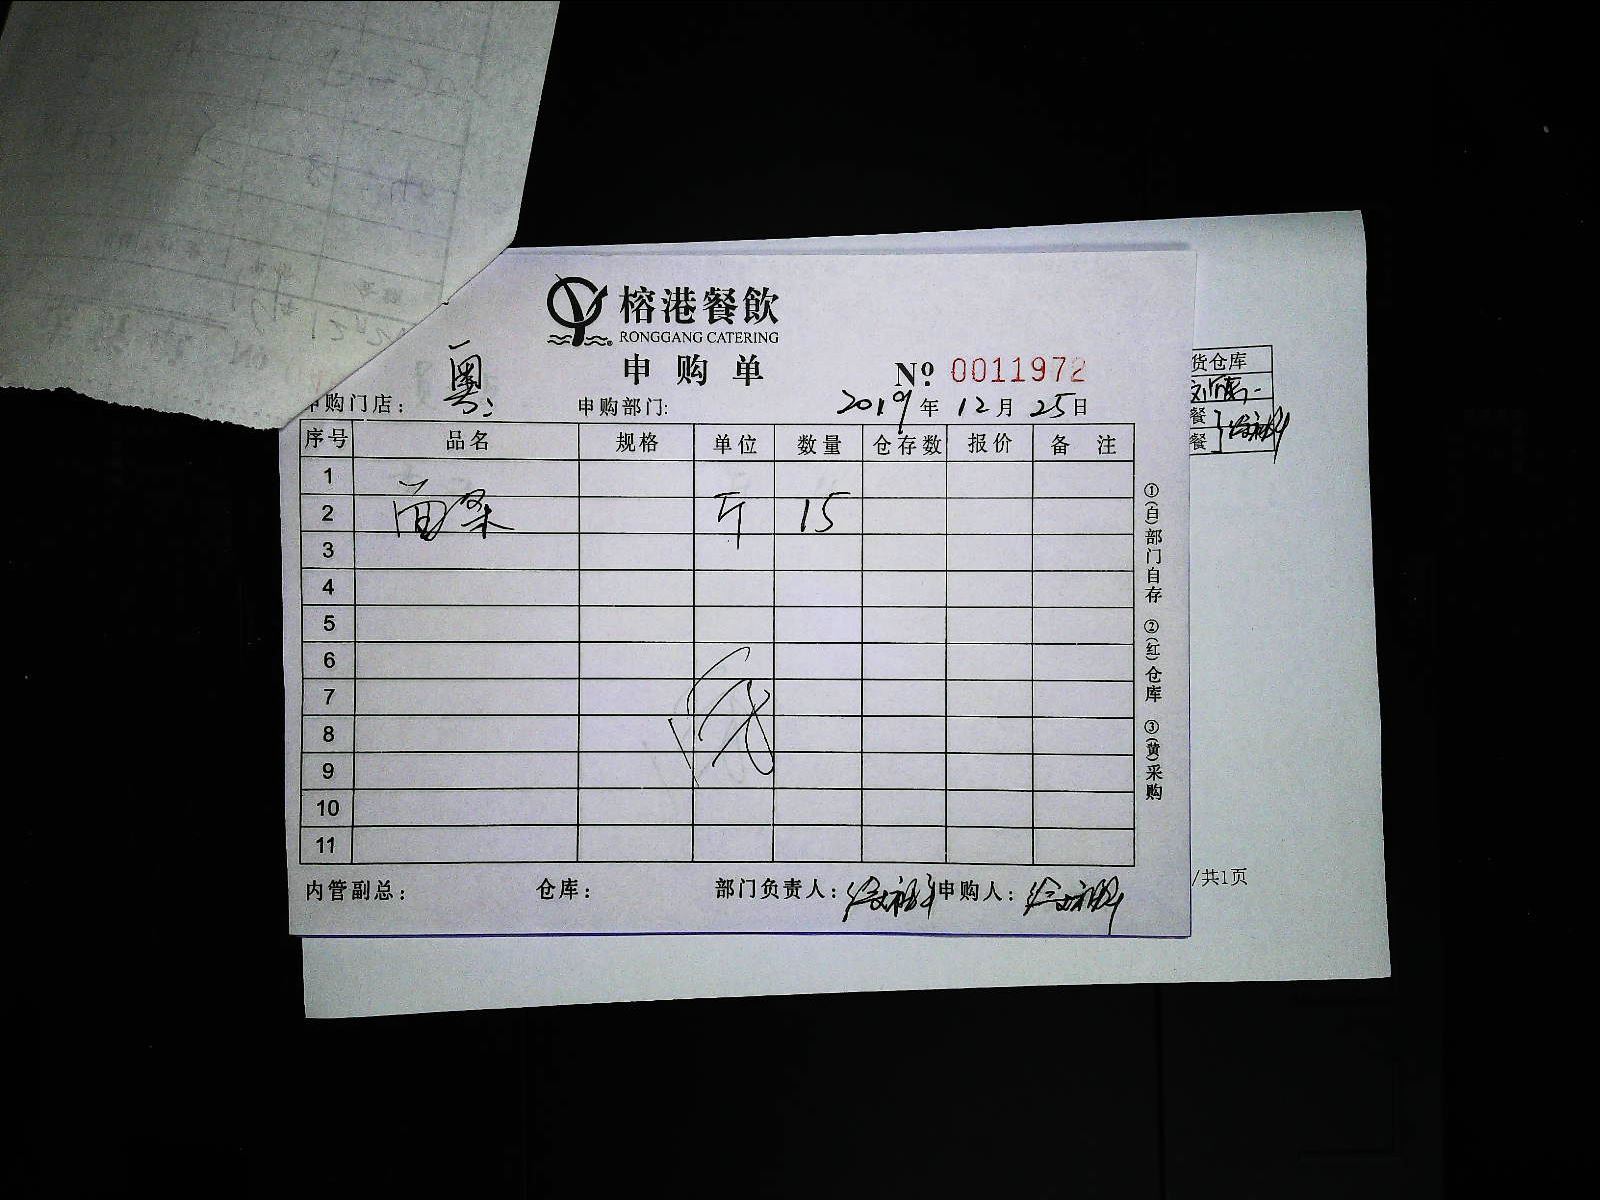 榕港餐飲
RONGGANG CATERING
申购单
Nº: 0011972
申购门店: 粤
申购部门:
2019年12月25日
序号 品名 规格 单位 数量 仓存数 报价 备注
1
2 面条 斤 15
3
4
5
6
7
8
9
10
11
内管副总: 仓库: 部门负责人: 申购人:
①(白)部门自存 ②(红)仓库 ③(黄)采购
货仓库
餐
餐
/共1页